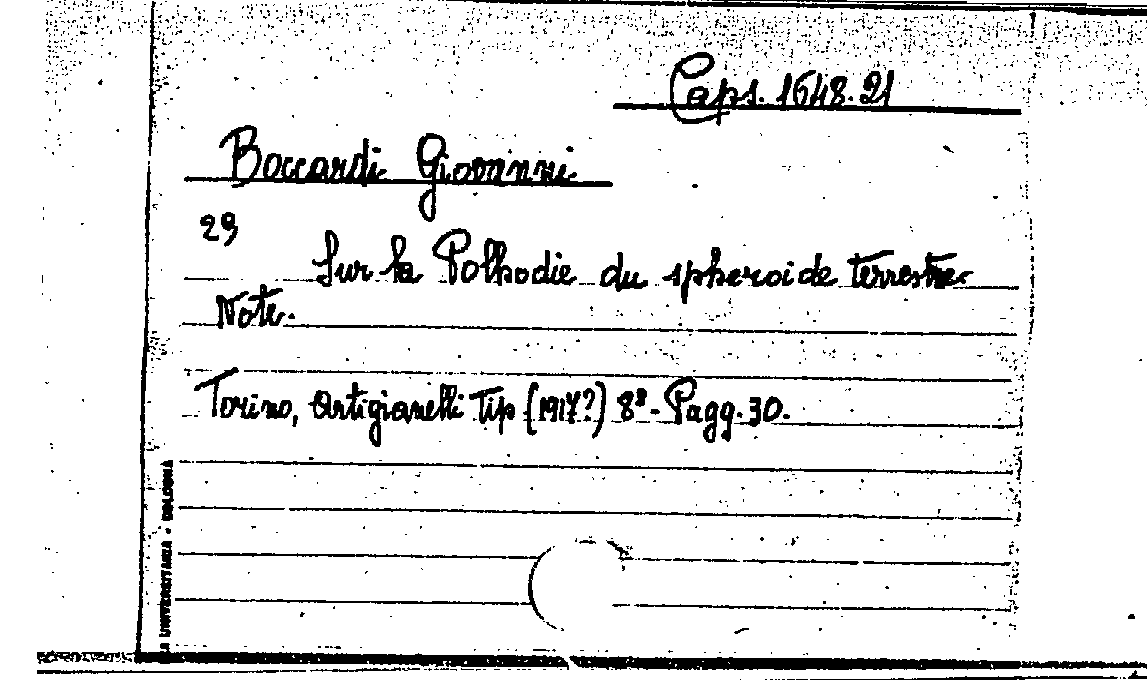 Caps. 1648.21
Boccardi Giovanni
29
Sur la Polhodie du spheroide terrestre.
Note.
Torino, Artigianelli Tip (1917?) 8º - Pagg. 30.
UNIVERSITARIA - BOLOGNA